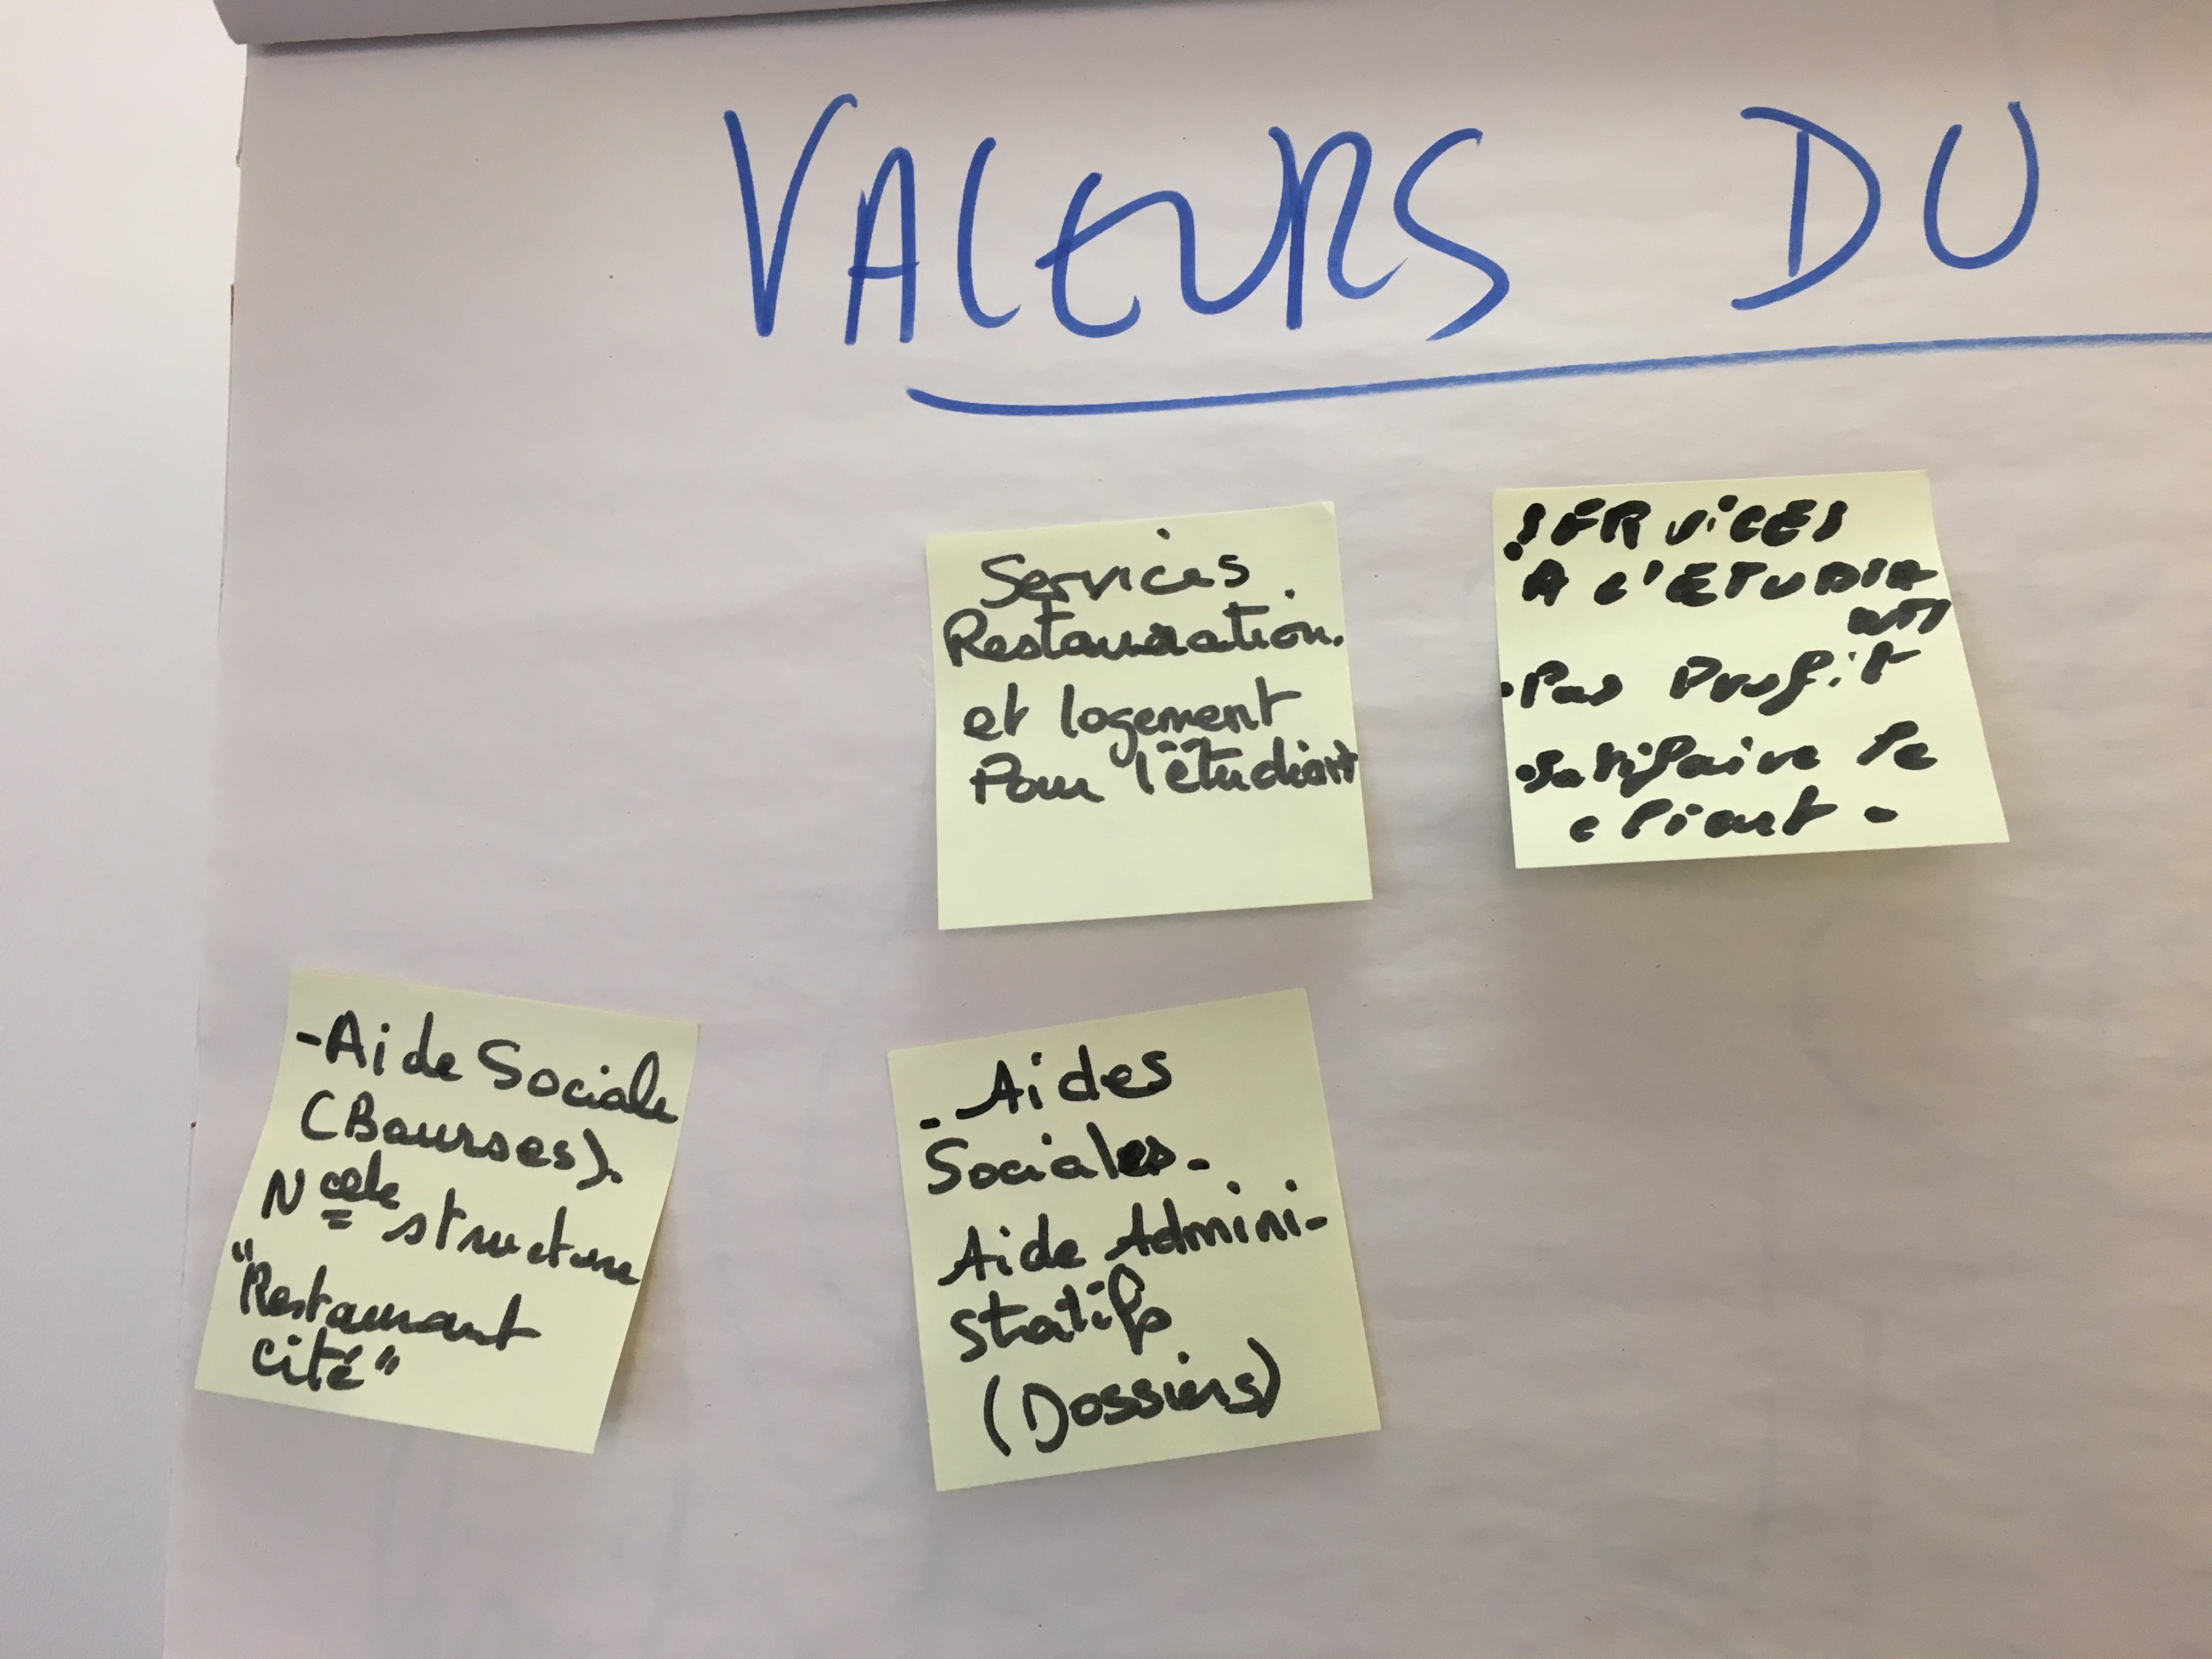 VALEURS DU
Services
Restauration.
et logement
Pour l'étudiant
. SERViCES
A l'ETUDIA
ant
. Pas Profit
. Satisfaire le
client -
- Aide Sociale
(Bourses).
N elle structure
"Restaurant
cité"
- Aides
Sociales -
Aide Admini-
stratifs
(Dossiers)